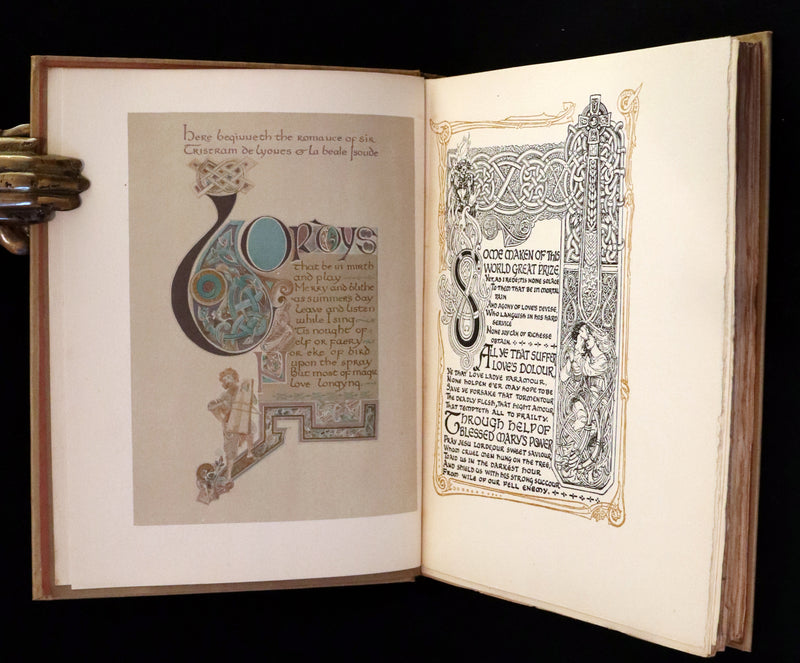 Here beginneth the romance of sir
Tristram de lyones & la beale Isoude
Lordys
that be in mirth
and play
Merry and blithe
as summers day
Leave and listen
while I sing
Tis nought of
elf or faery
or eke of bird
upon the spray
But most of magic
love longyng
SOME MAKEN OF THIS
WORLD GREAT PRIZE
YET, AS I REDE, TIS NONE SOLACE
TO THEM THAT BE IN MORTAL
PAIN
AND AGONY OF LOVE'S DEVISE,
WHO LANGUISH IN HIS HARD
SERVICE
NONE JOY CAN OF RICHESSE
OBTAIN
ALL YE THAT SUFFER
LOVE'S DOLOUR,
YE THAT LOVE LADYE PARAMOUR,
NONE HOLPEN E'ER MAY HOPE TO BE
SAVE YE FORSAKE THAT TORMENTOUR
THE DEADLY FLESH, THAT HIGHT AMOUR
THAT TEMPTETH ALL TO FRAILTY.
THROUGH HELP OF
BLESSED MARY'S POWER
PRAY JESU LORD, OUR SWEET SAVIOUR
WHOM CRUEL MEN HUNG ON THE TREE,
TO AID US IN THE DARKEST HOUR
AND SHIELD US WITH HIS STRONG SUCCOUR
FROM WILE OF OUR FELL ENEMY.